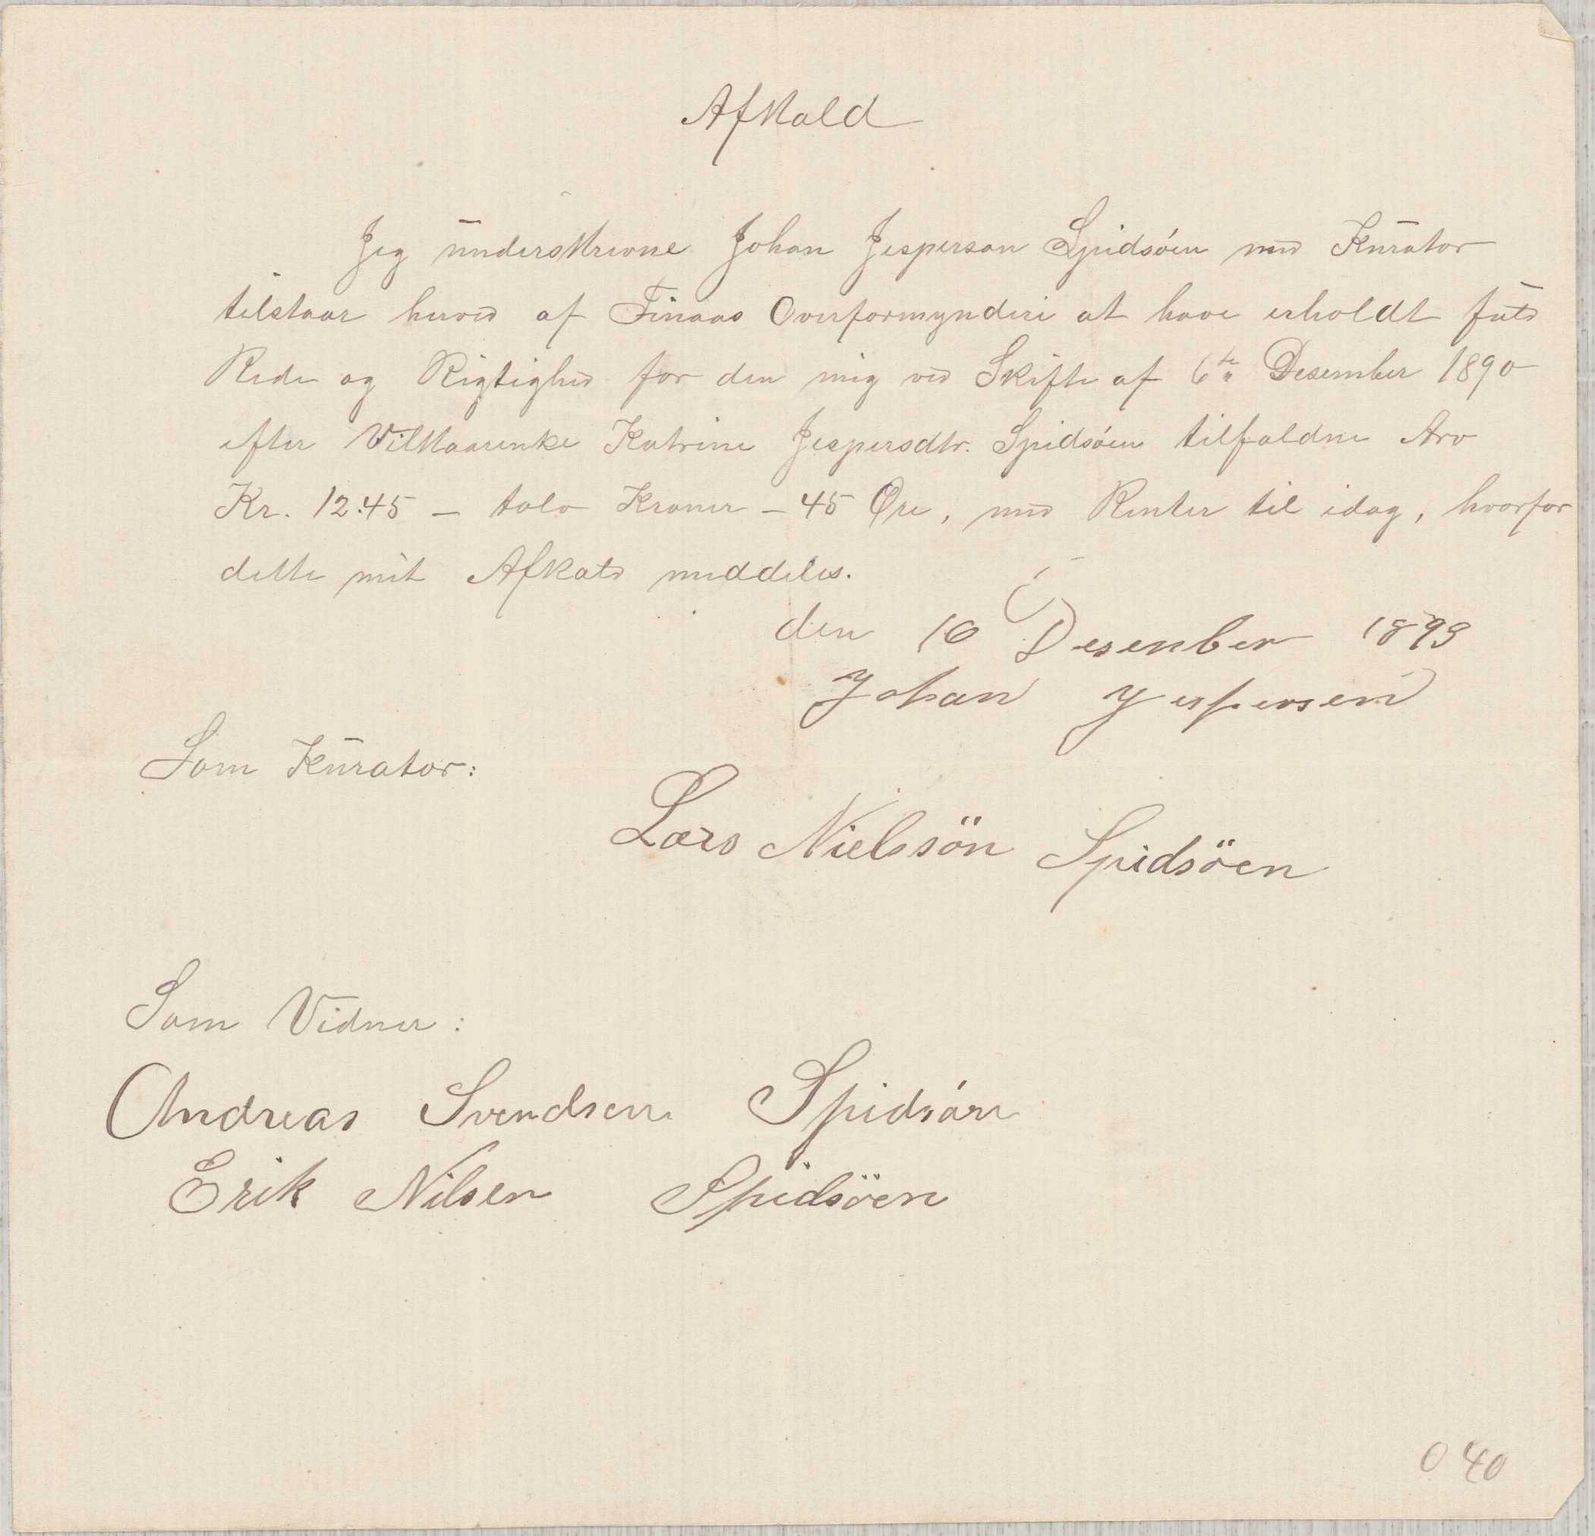 Afkald
Jeg underskrevne Johan Jesperson Spidsöen med Kurator
tilstaar herved af Finaas Overformynderi at have erholdt fuld
Rede og Rigtighed for den mig ved Skifte af 6te Desember 1890
efter Vilkaarenke Katrine Jespersdtr. Spidsöen tilfaldne Arv
Kr. 12.45 – tolv Kroner – 45 Øre, med Renter til idag, hvorfor
dette mit Afkald meddeles.
den 16 Desember 1899
Johan Jespersen
Som Kurator:
Lars Nielssön Spidsöen
Som Vidner:
Andreas Svendsen Spidsöen
Erik Nilsen Spidsöen
0 40